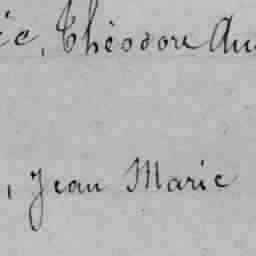 Théodore
, Jean Marie